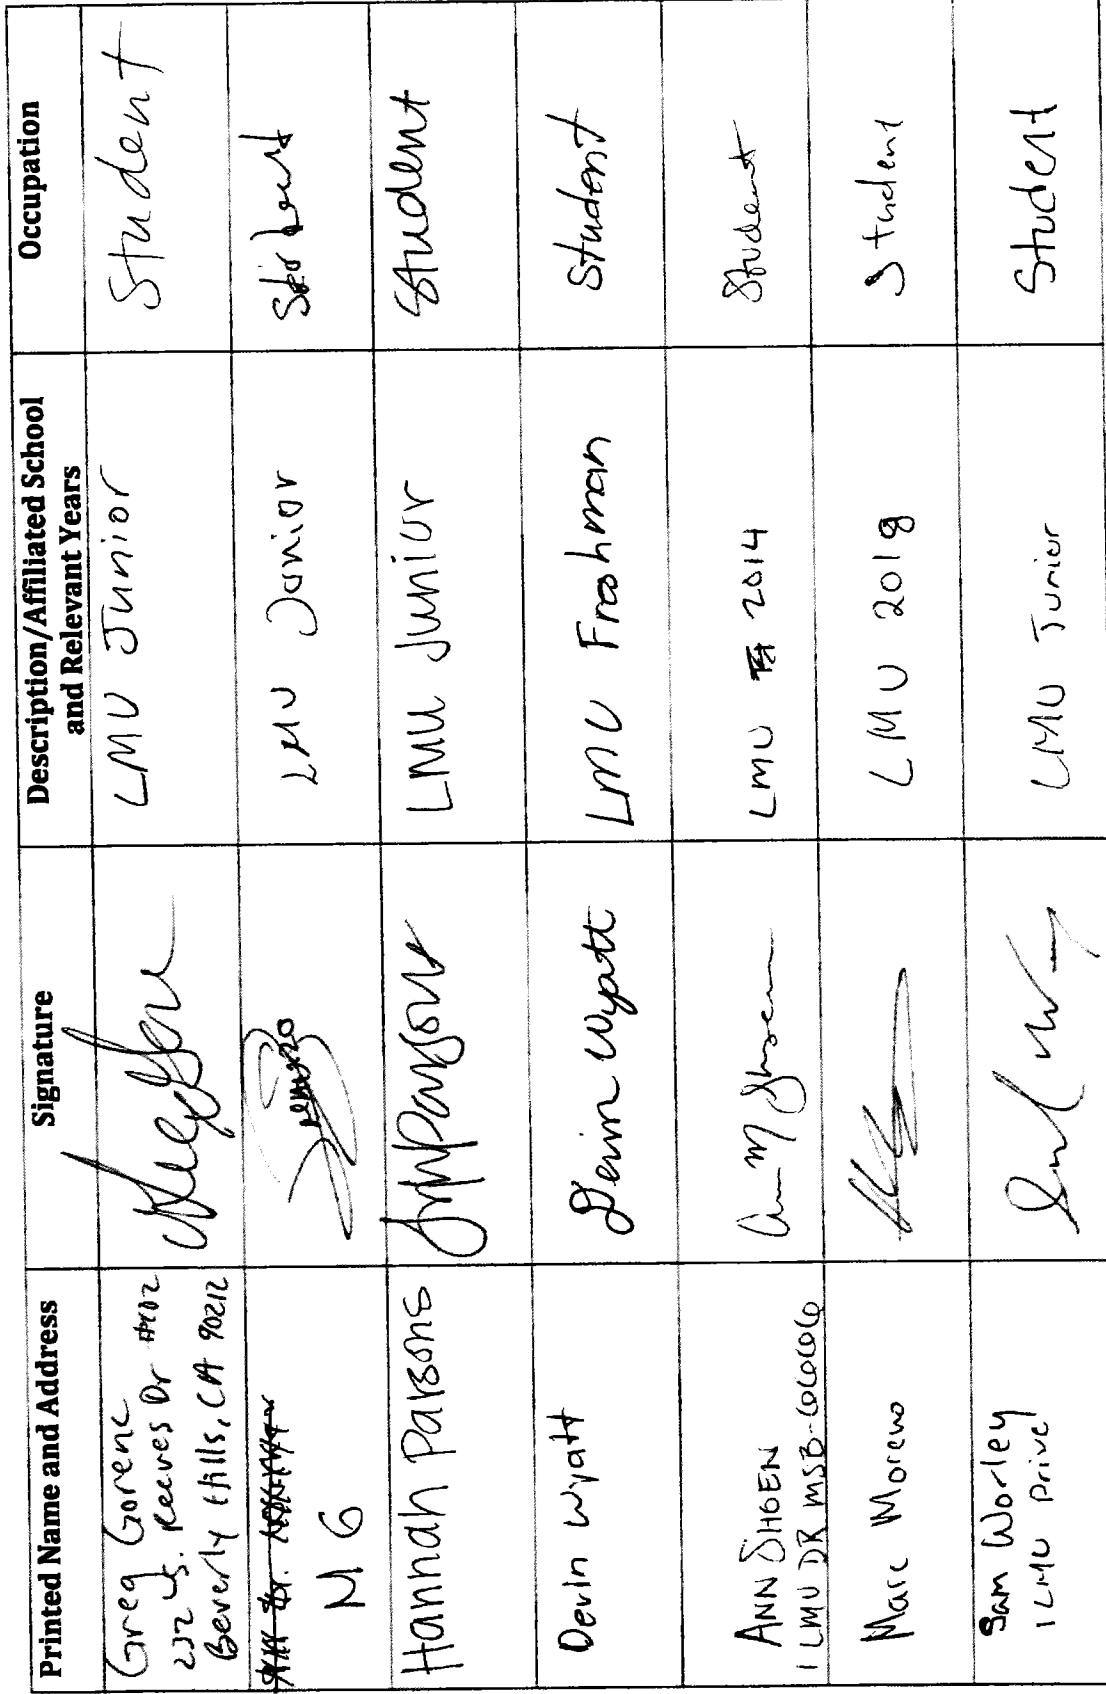 Printed Name and Address
Signature
Description/Affiliated School
and Relevant Years
Occupation
Greg Gorenc
232 S. Reeves Dr #102
Beverly Hills, CA 90212
LMU Junior
Student
M G
LMU Junior
Student
Hannah Parsons
LMU Junior
Student
Devin Wyatt
Devin Wyatt
LMU Freshman
Student
ANN SHOEN
1 LMU DR MSB-
Ann M Shoen
LMU 2014
Student
Marc Moreno
LMU 2018
Student
Sam Worley
1 LMU Drive
LMU Junior
Student